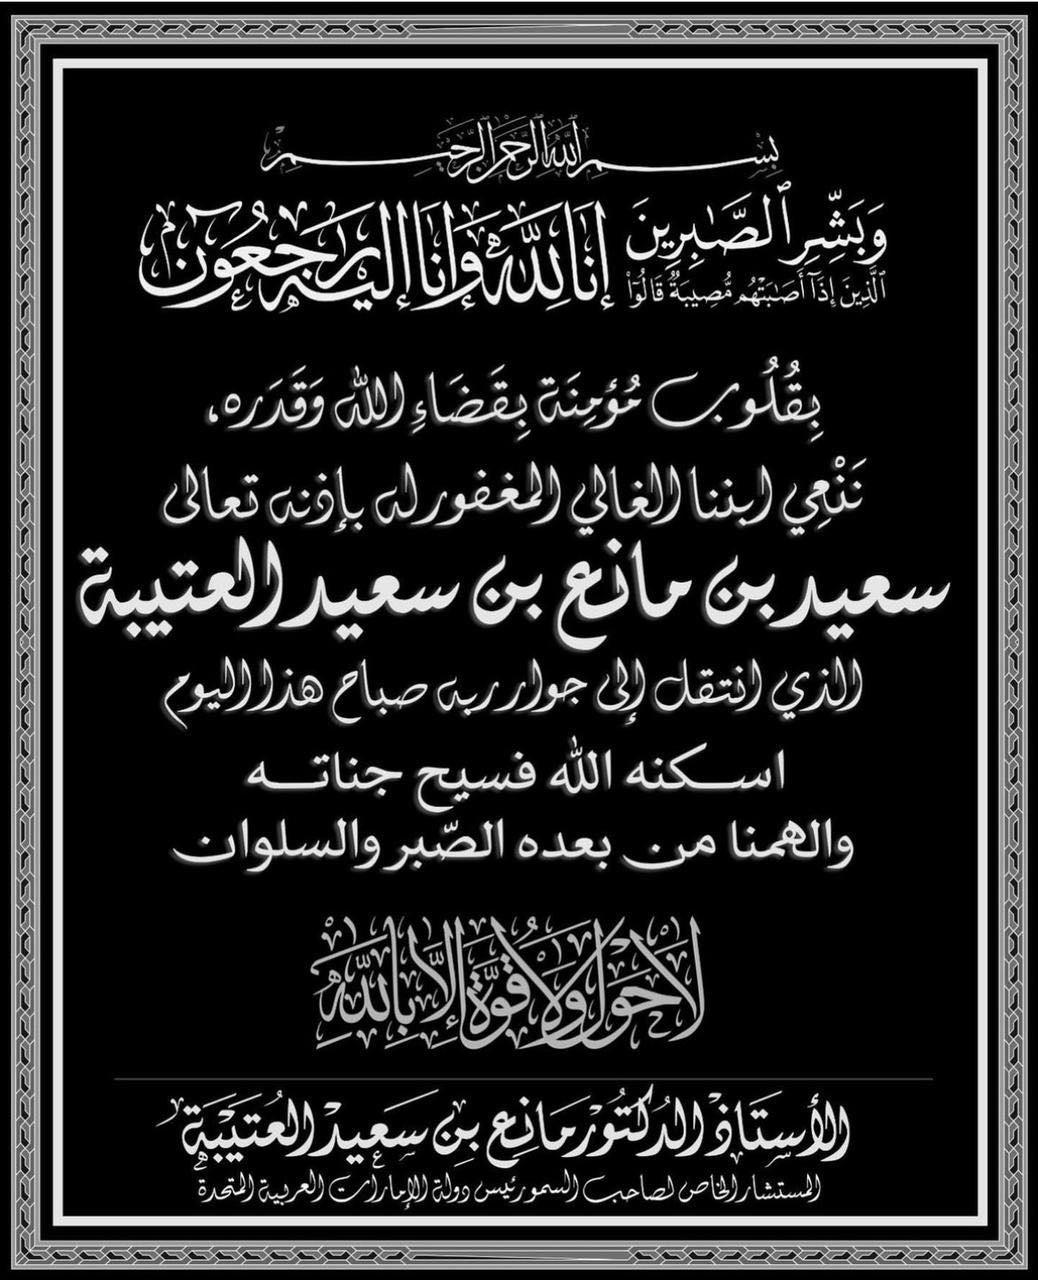 بِسْمِ اللَّهِ الرَّحْمَنِ الرَّحِيمِ
وَبَشِّرِ ٱلصَّٰبِرِينَ
ٱلَّذِينَ إِذَآ أَصَٰبَتْهُم مُّصِيبَةٌ قَالُوٓا۟
إِنَّا لِلَّهِ وَإِنَّا إِلَيْهِ رَاجِعُونَ
بِقُلُوبٍ مُؤْمِنَة بِقَضَاءِ الله وَقَدَره،
نَنْعِي ابننا الغالي المغفور له بإذنه تعالى
سعيد بن مانع بن سعيد العتيبة
الذي انتقل إلى جوار ربه صباح هذا اليوم
اسكنه الله فسيح جناته
والهمنا من بعده الصّبر والسلوان
لَا حَوْلَ وَلَا قُوَّةَ إِلَّا بِاللَّهِ
الأستاذ الدكتور مانع بن سعيد العتيبة
المستشار الخاص لصاحب السمو رئيس دولة الإمارات العربية المتحدة